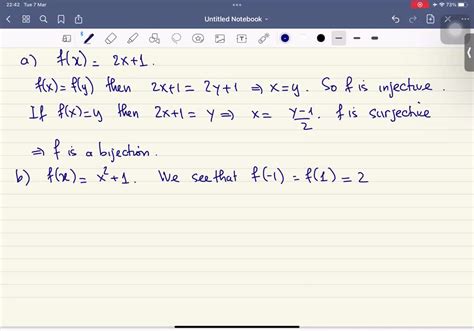 22:42 Tue 7 Mar
73%
Untitled Notebook
a) f(x) = 2x+1.
f(x) = f(y) then 2x+1 = 2y+1 ⇒ x=y. So f is injective.
If f(x)=y then 2x+1 = y ⇒ x = (y-1)/2. f is surjective
⇒ f is a bijection.
b) f(x) = x²+1. We see that f(-1) = f(1) = 2